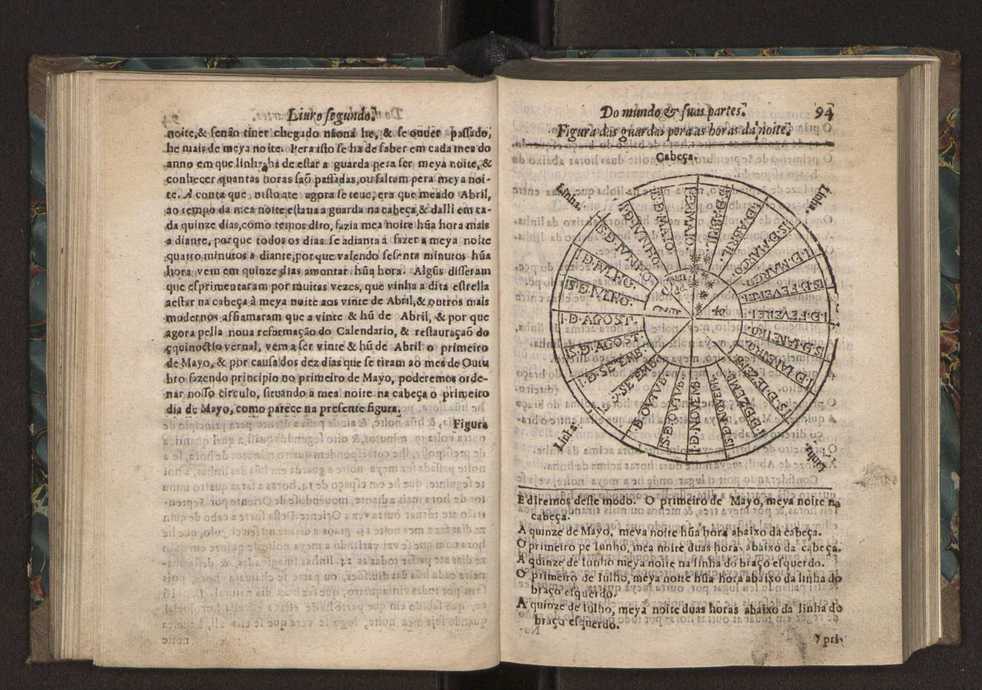 Liuro segundo.
noite, & senão tiuer chegado nãona he, & se ouuer passado,
he mais de meya noite. Pera isto se ha de saber em cada mes do
anno em que linha ha de estar a guarda pera ser meya noite, &
conhecer quantas horas saõ passadas, ou faltam pera meya noi-
te. A conta que nisto ate agora se teue, era que meado Abril,
ao tempo da mea noite estaua a guarda na cabeça, & dalli em ca-
da quinze dias, como temos dito, fazia mea noite hũa hora mais
a diante, porque todos os dias se adianta a fazer a meya noite
quatro minutos a diante, porque valendo sesenta minutos hũa
hora vem em quinze dias amontar hũa hora. Algũs disseram
que esprimentaram por muitas vezes, que vinha a dita estrella
a estar na cabeça à meya noite aos vinte de Abril, & outros mais
modernos affiamaram que a vinte & hũ de Abril, & por que
agora pella noua reformação do Calendario, & restauraçaõ do
equinoctio vernal, vem a ser vinte & hũ de Abril o primeiro
de Mayo, & por causa dos dez dias que se tiram ao mes de Outu
bro fazendo principio no primeiro de Mayo, poderemos orde-
nar nosso circulo, situando a mea noite na cabeça o primeiro
dia de Mayo, como parece na presente figura.
Figura
Do mundo & suas partes. 94
Figura das guardas pera as horas da noite.
Cabeça.
Linha.
Linha.
I.D.MAYO
15.D.ABRIL
I.D.ABRIL
15.D.MARÇO
I.D.MARÇO
15.D.FEVEREI.
I.D.FEVEREI.
15.D.IANEIRO.
I.D.IANEIRO
15.D.DEZEMB
I.D.DEZEMB
15.D.NOVEMB
I.D.NOVEMB
15.D.OVTVB
I.D.OVTVB
15.SETEMB
I.D.SETEMB
15.D.AGOST.
I.D.AGOST.
15.D.IVLHO.
I.D.IVLHO.
15.D.IVNHO
I.D.IVNHO.
15.D.MAYO
Linha.
Linha.
E diremos deste modo. O primeiro de Mayo, meya noite na
cabeça.
A quinze de Mayo, meya noite hũa hora abaixo da cabeça.
O primeiro de Iunho, mea noite duas horas abaixo da cabeça.
A quinze de Iunho meya noite na linha do braço esquerdo.
O primeiro de Iulho, meya noite hũa hora abaixo da linha do
braço esquerdo.
A quinze de Iulho, meya noite duas horas abaixo da linha do
braço esquerdo.